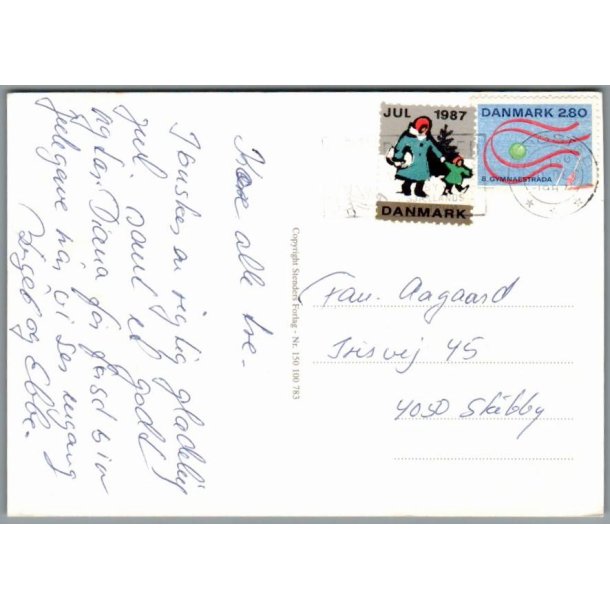 JUL 1987
DANMARK
DANMARK 2.80
8. GYMNAESTRADA
Kære alle tre.
I ønskes en rigtig glædelig
jul samt et godt
nytår. Diana får først sin
julegave når vi ses engang
Ingeb og Ebbe.
Copyright Stenders Forlag - Nr. 150 100 783
Fam. Aagaard
Irisvej 45
4050 Skibby